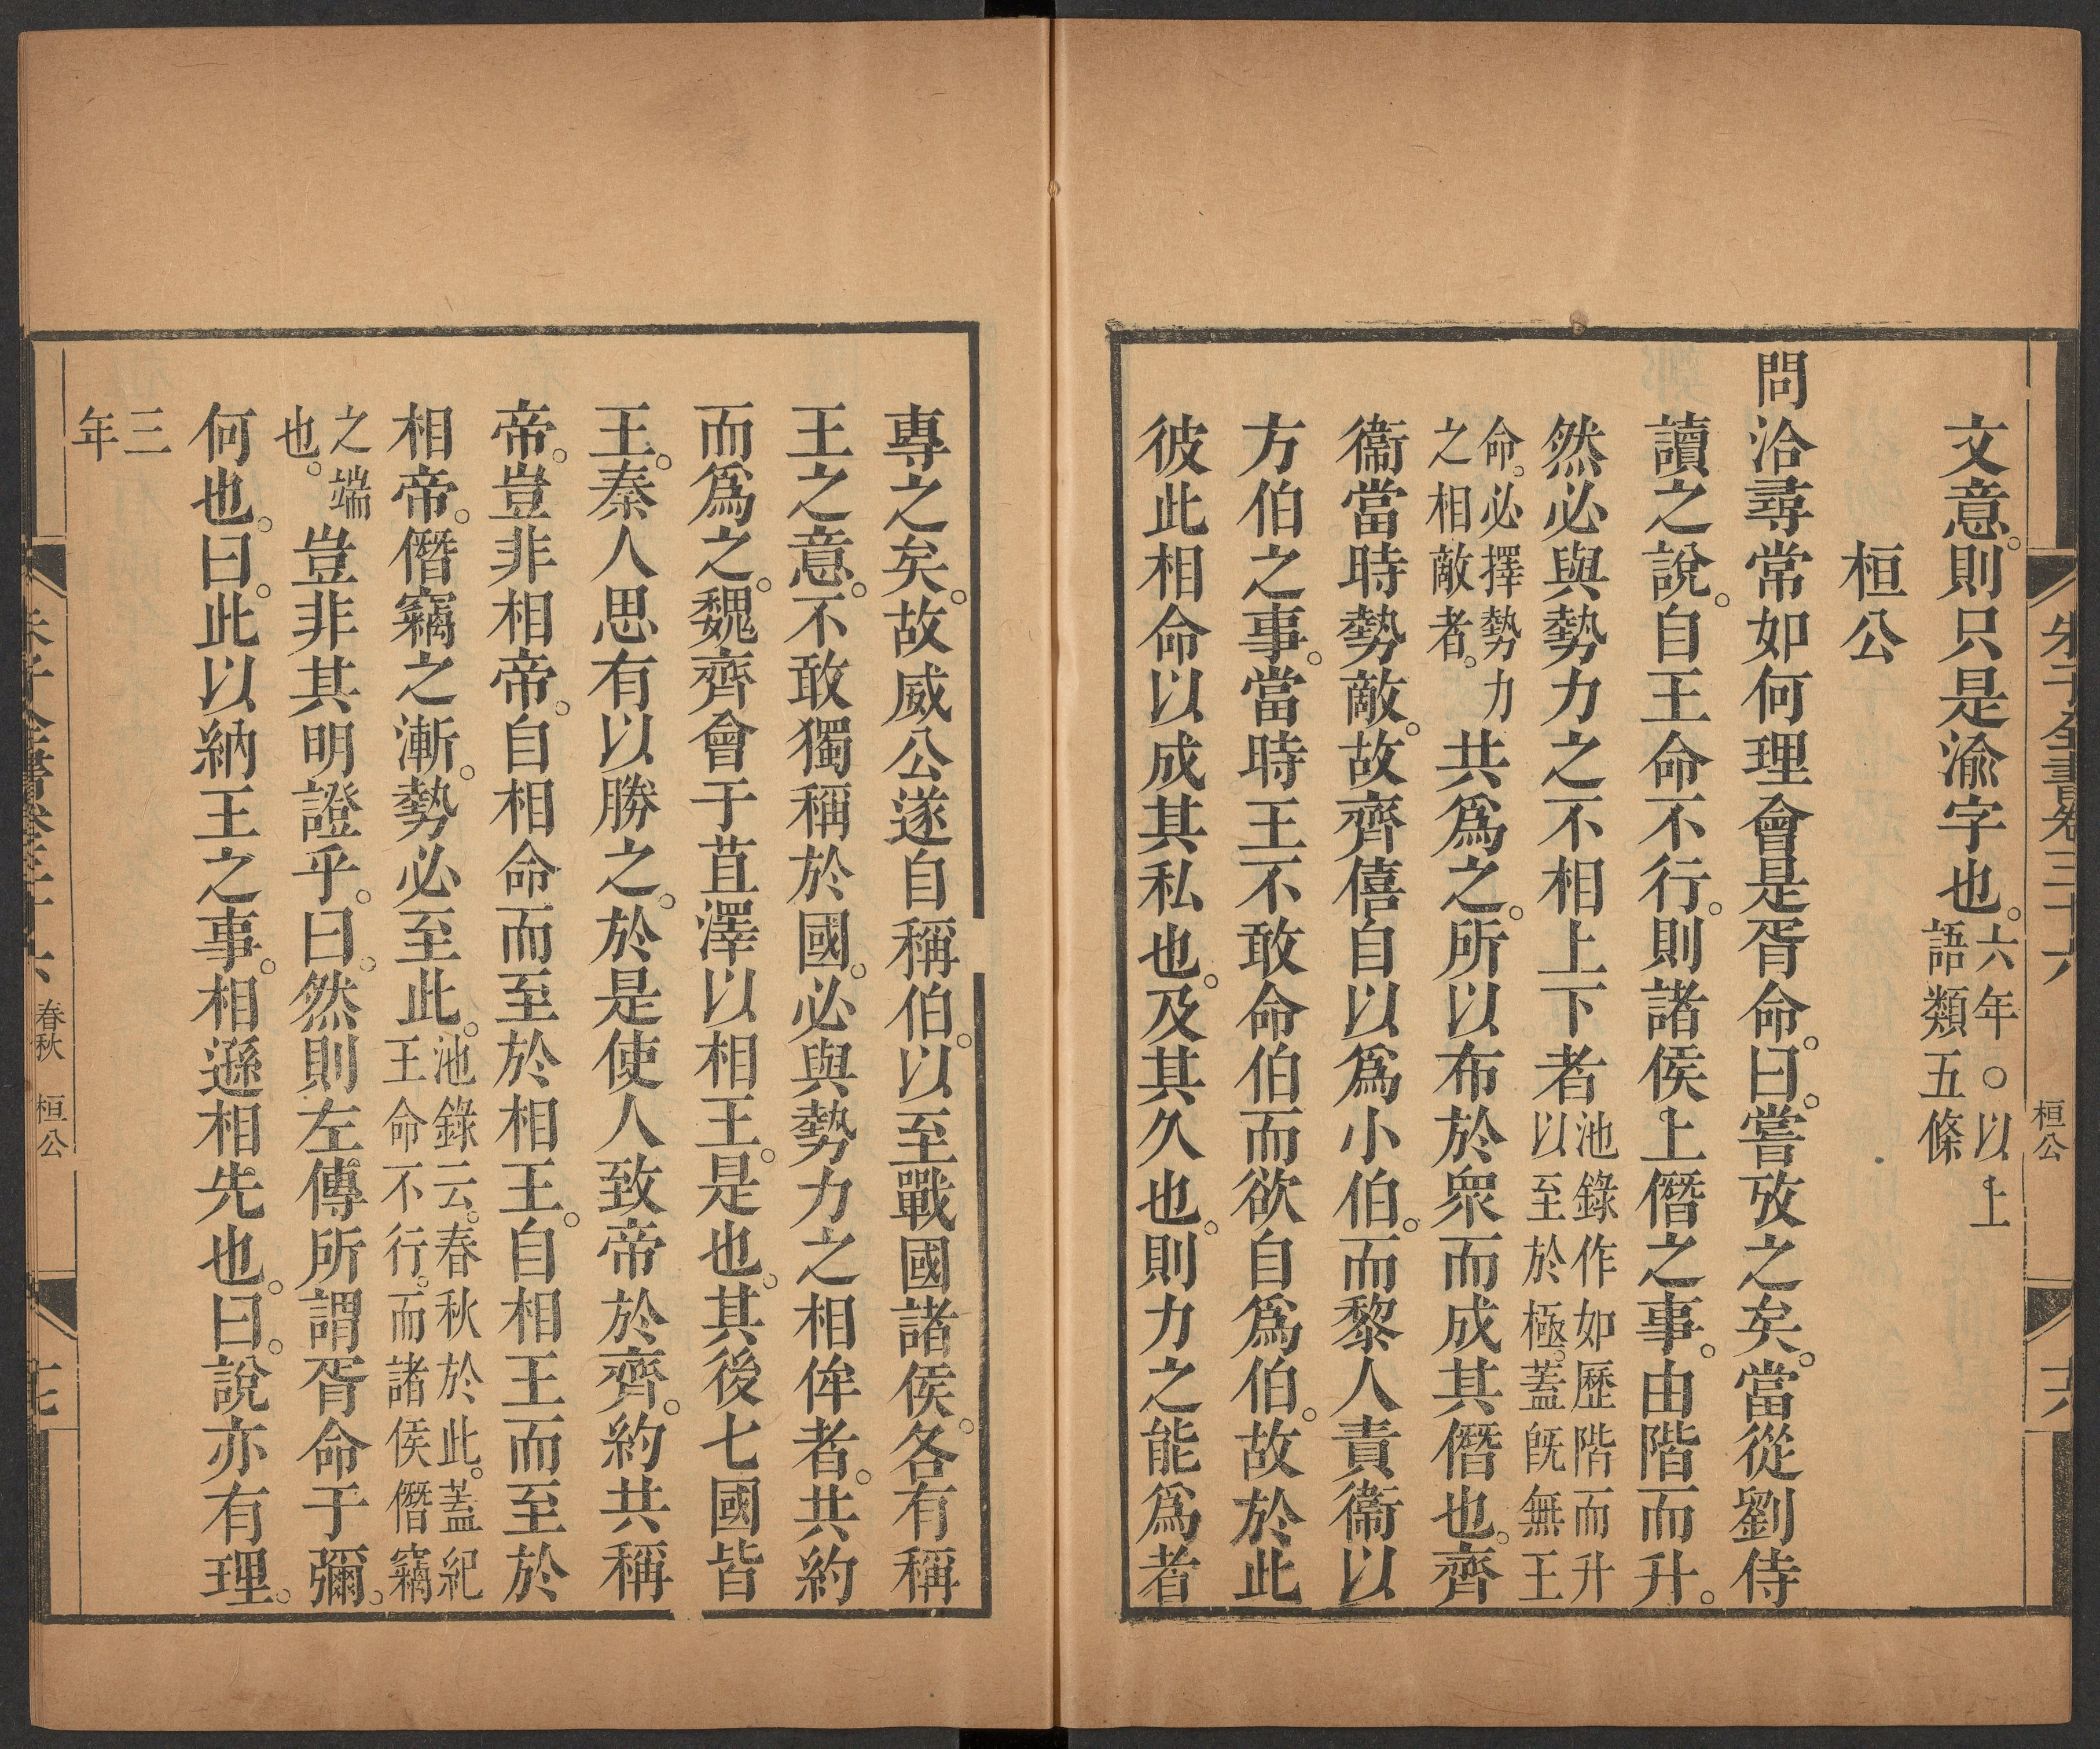 朱子全書卷三十六
桓公
十六
文意。則只是渝字也。六年○以上
語類五條
桓公
問洽尋常如何理會是胥命。曰。嘗攷之矣。當從劉侍
讀之說。自王命不行。則諸侯上僭之事。由階而升。
然必與勢力之不相上下者池錄作如歷階而升
以至於極。蓋旣無王
命。必擇勢力
之相敵者。共爲之。所以布於衆而成其僭也。齊
衞當時勢敵。故齊僖自以爲小伯。而黎人責衞以
方伯之事。當時王不敢命伯而欲自爲伯。故於此
彼此相命以成其私也。及其久也。則力之能爲者
專之矣。故威公遂自稱伯。以至戰國諸侯。各有稱
王之意。不敢獨稱於國。必與勢力之相侔者。共約
而爲之。魏齊會于苴澤以相王。是也。其後七國皆
王。秦人思有以勝之。於是使人致帝於齊。約共稱
帝。豈非相帝。自相命而至於相王。自相王而至於
相帝。僭竊之漸。勢必至此。池錄云。春秋於此。蓋紀
王命不行。而諸侯僭竊
之端
也。豈非其明證乎。曰。然則左傳所謂胥命于彌。
何也。曰。此以納王之事。相遜相先也。曰。說亦有理。
三
年
春秋 桓公
十七